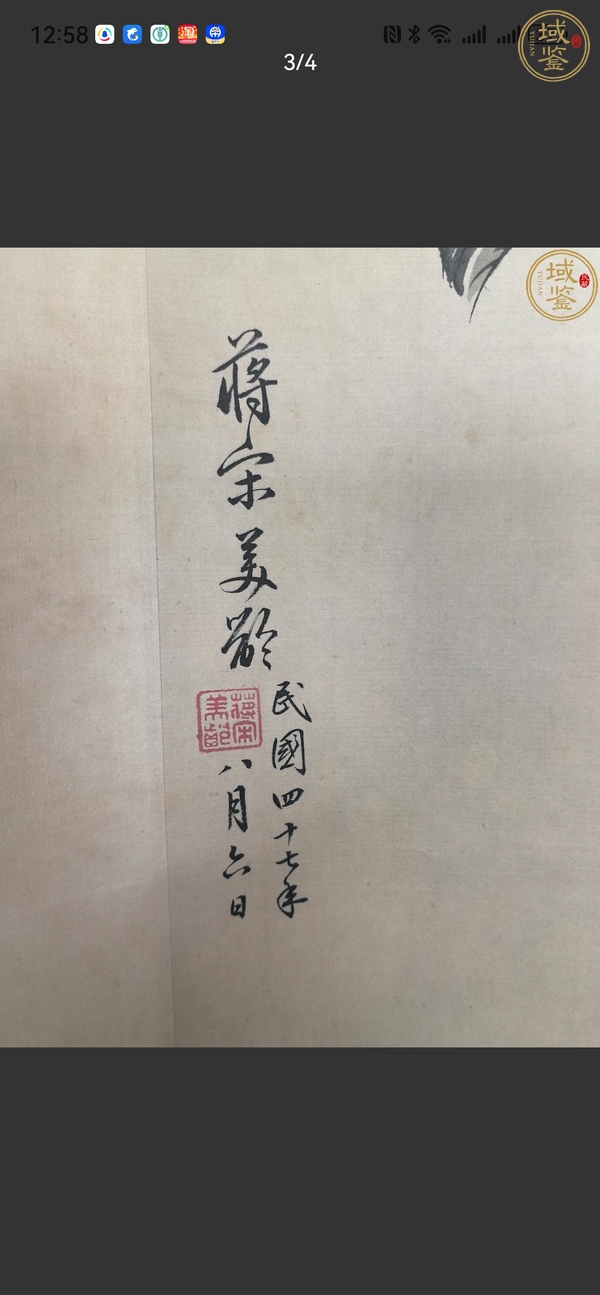 12:58
3/4
域鉴
YUJIAN
域鉴
YUJIAN
蔣宋美齡
民國四十七年
八月六日
蔣宋
美齡